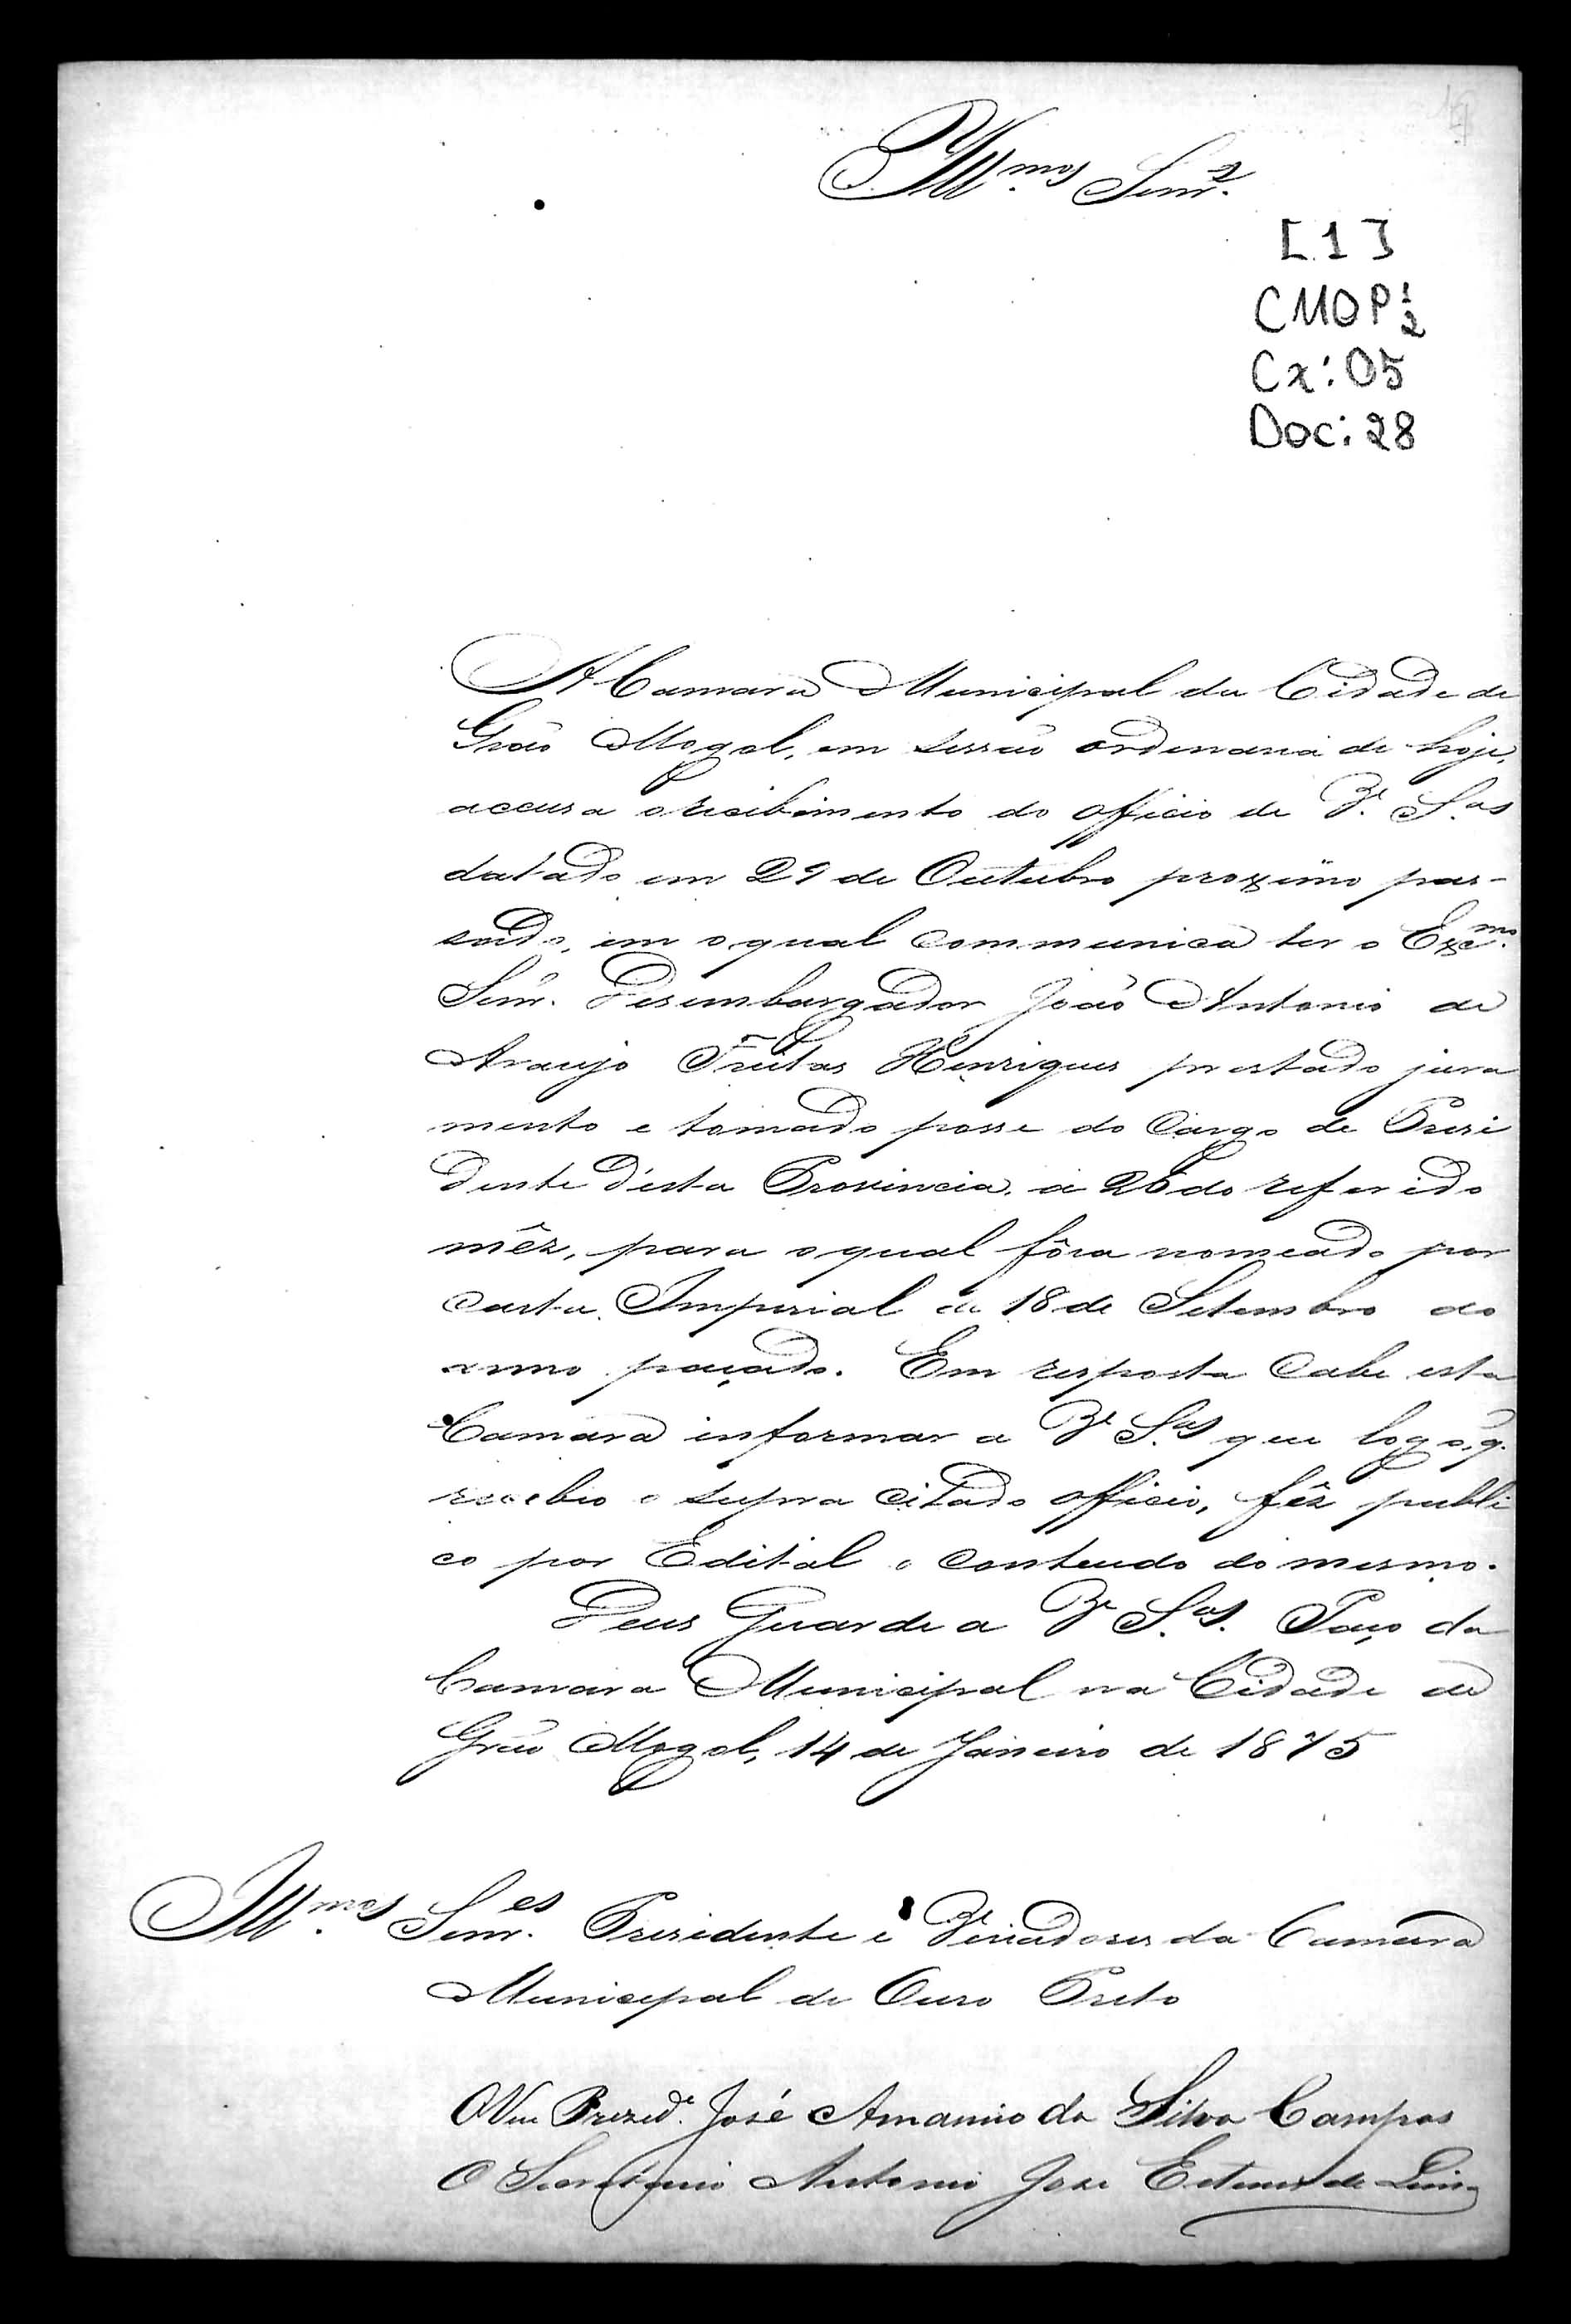 Ill.mos Senr.es
[1]
CMOP 1/2
Cx: 05
Doc: 28
A Camara Municipal da Cidade de
Grão Mogol, em sessão ordenaria de hoje,
accusa o recibimento do officio de V.ª S.as
datado em 29 de Outubro proximo pas-
sado, em o qual communica ter o Exc.mo
Senr. Desembargador João Antonio de
Araujo Freitas Henriques prestado jura
mento e tomado posse do Cargo de Presi
dente d'esta Provincia, a 26 do referido
mêz, para o qual fôra nomeado por
Carta Imperial de 18 de Setembro do
anno paçado. Em resposta Cabe esta
Camara informar a V.ª S.as que logo q.
recebio o supra citado officio, fêz publi
co por Edital o Conteudo do mesmo.
Deus Guarde a V.ª S.as. Paço da
Camara Municipal na Cidade de
Grão Mogol, 14 de Janeiro de 1875
Ill.mos Senr.es Presidente e Veriadores da Camara
Municipal de Ouro Preto
O Vice Prezid.e José Amancio da Silva Campos
O Secretario Antonio Jose Esteves de Lima